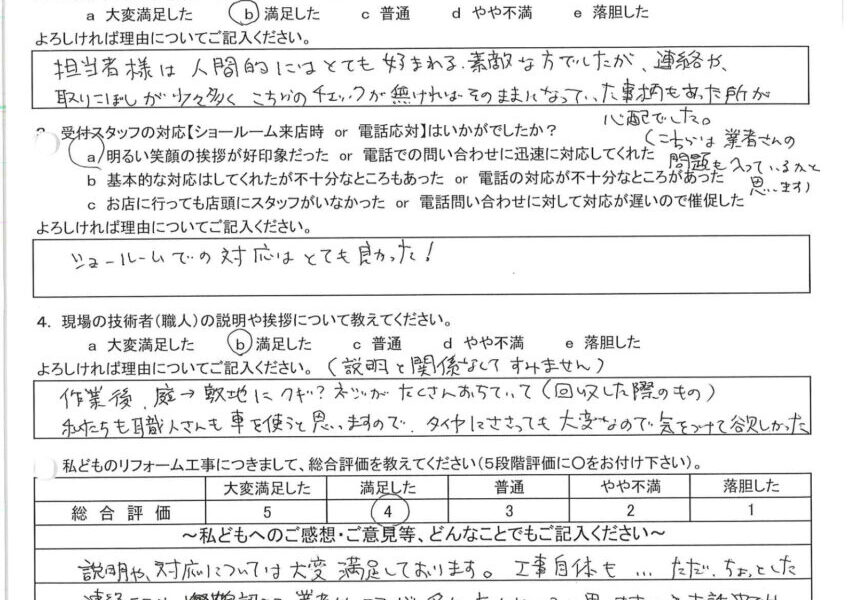 a 大変満足した b 満足した c 普通 d やや不満 e 落胆した
よろしければ理由についてご記入ください。
担当者様は人間的にはとても好まれる、素敵な方でしたが、連絡や、
取りこぼしが少々多くこちらのチェックが無ければそのままになっていた事柄もあった所が
心配でした。
(こちらは業者さんの
問題も入っているかと
思います)
受付スタッフの対応【ショールーム来店時 or 電話応対】はいかがでしたか?
a 明るい笑顔の挨拶が好印象だった or 電話での問い合わせに迅速に対応してくれた
b 基本的な対応はしてくれたが不十分なところもあった or 電話の対応が不十分なところがあった
c お店に行っても店頭にスタッフがいなかった or 電話問い合わせに対して対応が遅いので催促した
よろしければ理由についてご記入ください。
ショールームでの対応はとても良かった!
4. 現場の技術者(職人)の説明や挨拶について教えてください。
a 大変満足した b 満足した c 普通 d やや不満 e 落胆した
よろしければ理由についてご記入ください。(説明と関係なくてすみません)
作業後、庭→敷地にクギ?ネジがたくさんおちていて(回収した際のもの)
私たちも職人さんも車を使うと思いますので、タイヤにささっても大変なので気をつけて欲しかった
私どものリフォーム工事につきまして、総合評価を教えてください(5段階評価に〇をお付け下さい)。
大変満足した 満足した 普通 やや不満 落胆した
総合評価 5 4 3 2 1
~私どもへのご感想・ご意見等、どんなことでもご記入ください~
説明や、対応については大変満足しております。工事自体も…ただ、ちょっとした